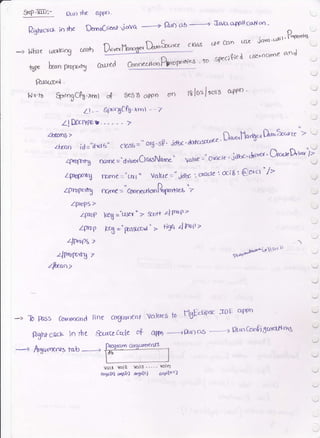 Step-III:- Run the appn.
Rightclick in the DemoClient.java ——> Run as ——> Java application.
—> While working with DriverManagerDataSource class we can use java.util.Properties
type bean property called ConnectionProperties, to specified username and
Password.
SpringCfg.xml of SES15 appn on 18/05/2013 appn.
<!-- SpringCfg.xml -->
<!DOCTYPE ......>
<beans>
<bean id="ds" class="org.sp.jdbc.datasource.DriverManagerDataSource">
<property name="driverClassName" value="oracle.jdbc.driver.OracleDriver"/>
<property name="url" value="jdbc:oracle:oci8:@orcl"/>
<property name="connectionProperties">
<props>
<prop key="user">scott</prop>
<prop key="password">tiger</prop>
</props>
</property>
</bean>
—> To pass command line argument values to MyEclipse IDE appn
Right click in the Source Code of appn ——> Run as ——> Run Configurations
—> Arguments tab ——> Program arguments
val1 val2 val3 ..... valn
args[0] args[1] args[2] args[n-1]